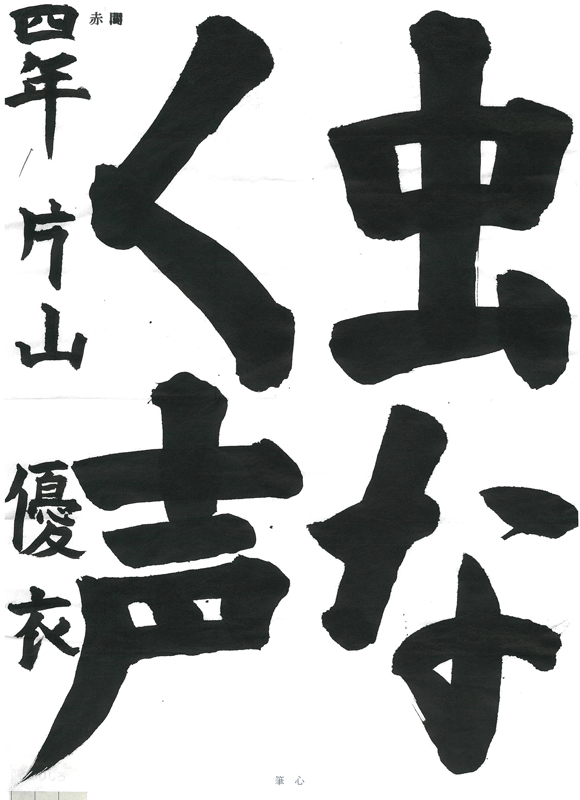 虫な
く声
四年 片山 優衣
赤間
筆心